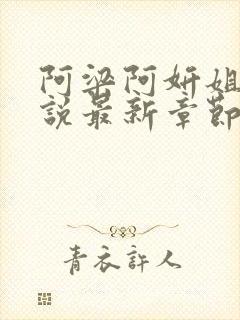 阿梁阿妍姐
说最新章節
青衣許人